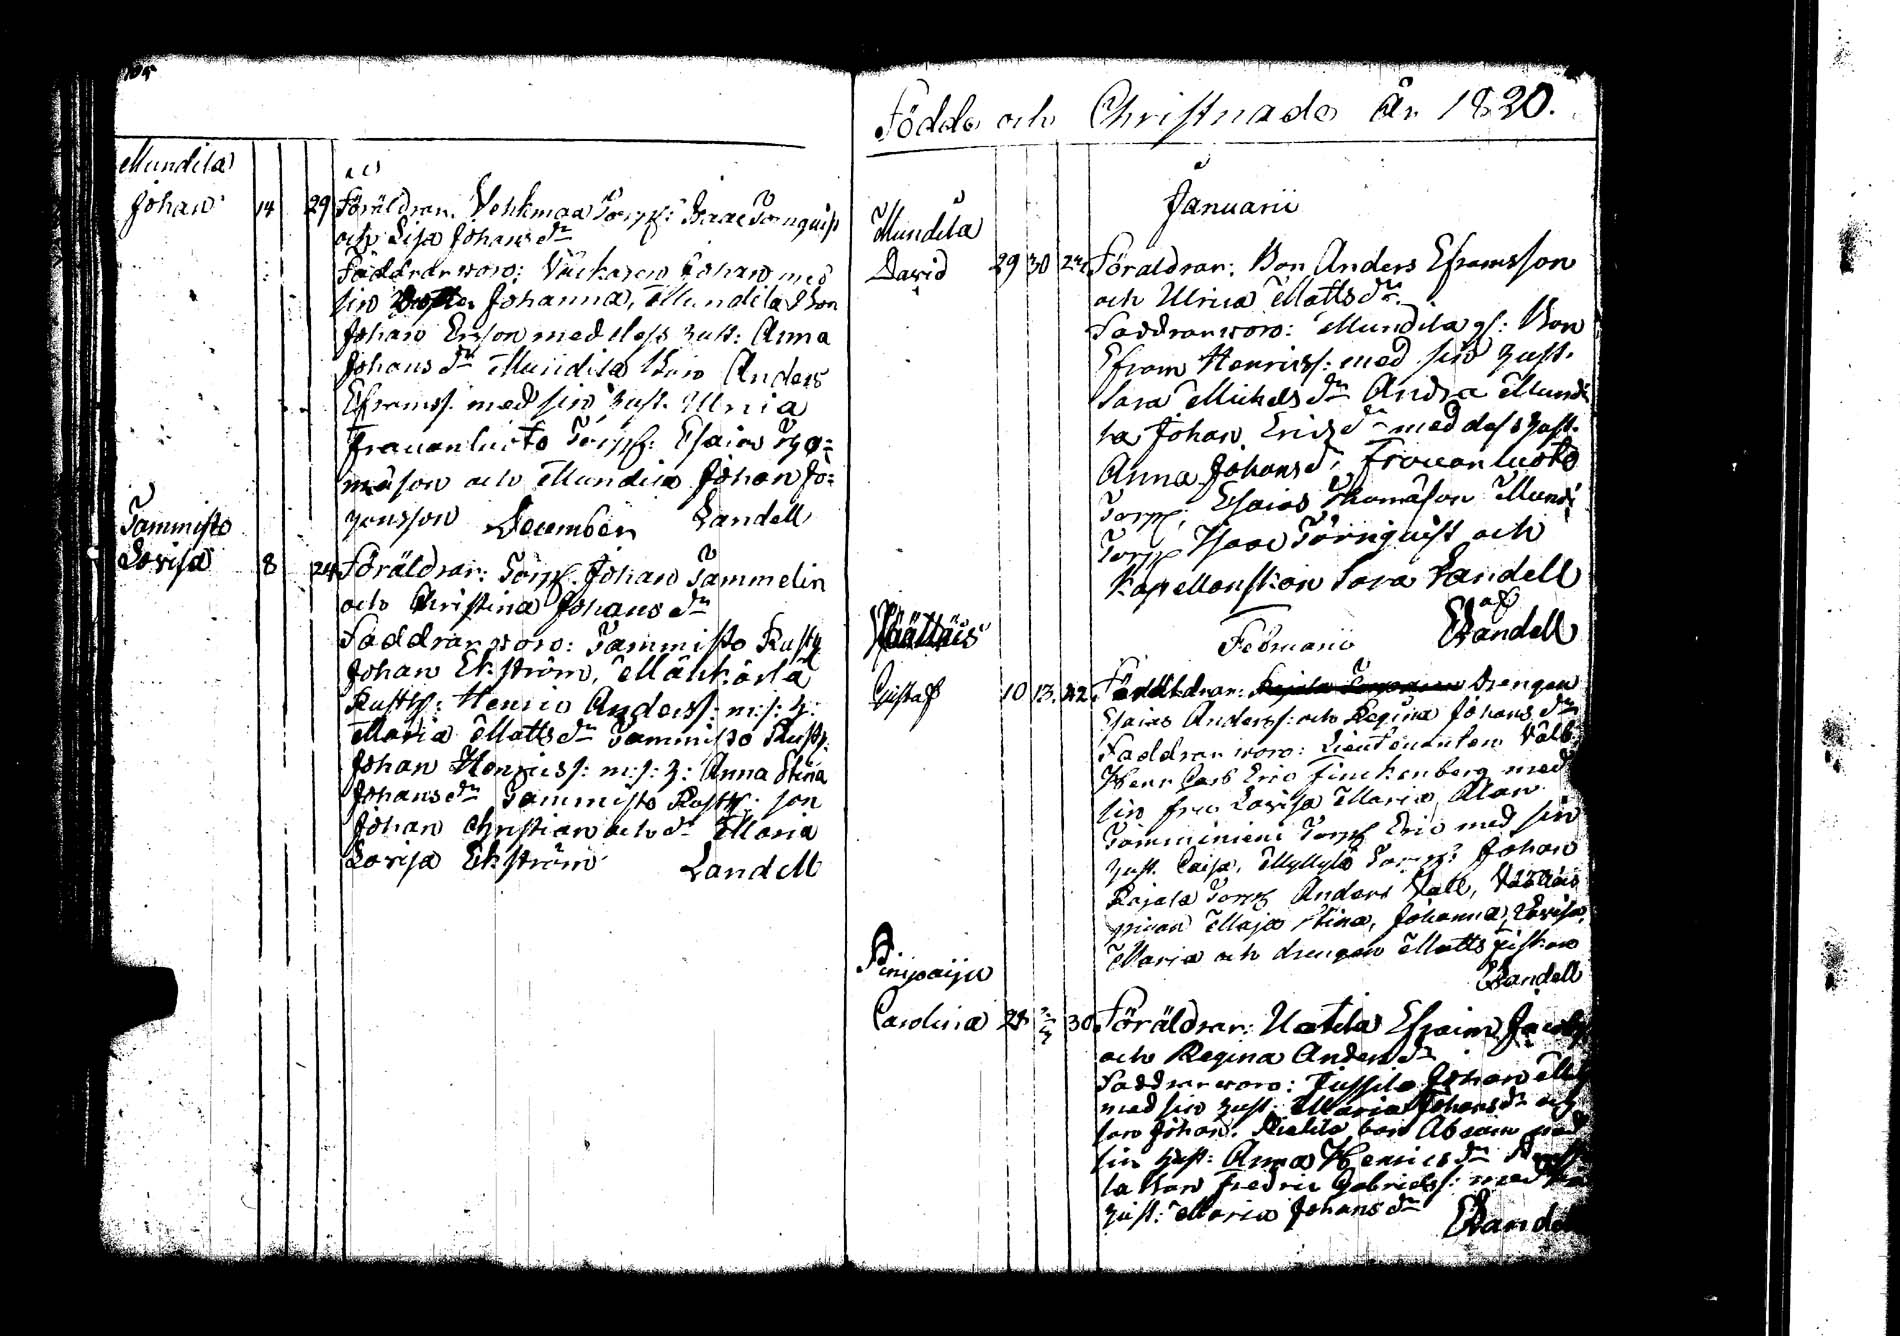 Mundila
Johan 14 29 Föräldrar: Vehkmaa Torp: Isaac Törnquist
och Lisa Johans dr
Faddrar woro: Johan med
sin Johanna, Mundila Bon
Johan Ersson med dess hust: Anna
Johans dr Mundila Bon Anders
Eframss. med sin hust. Ulrica
Frouvanluoto Torp: Esaias Tho=
mason och Mundila Johan Jo=
hansson Landell
December
Tammisto
Lovisa 8 24 Föräldrar: Torp. Johan Tammelin
och Christina Johans dr
Faddrar woro: Tammisto Rusth
Johan Ekström,
Rusth: Henric Anderss: m: s: h:
Maria Matts dr Tammisto Rusth.
Johan Henricss: m: s: h: Anna Stina
Johans dr Tammisto Rusth: son
Johan Christian och dr Maria
Lovisa Ekström Landell
Födde och Christnade År 1820.
Januarii
Mundila
David 29 30 24 Föräldrar: Bon Anders Eframsson
och Ulrica Matts dr
Faddrar woro: Mundila gl: Bon
Efram Henricss: med sin hust.
Sara Michels dr Andra Mundi
la Johan Erics med dess hust.
Anna Johans dr, Frouvanluoto
Torp, Esaias Thomason Mundi
Torp Isaac Törnquist och
Kapellanskan Sara Landell
Landell
Februarii
Väättäis
Gustaf 10 13 22 Föräldrar: Drengen
Esaias Anderss: och Regina Johans dr
Faddrar woro: Lieutenanten Välb.
Herr Carl Eric Finckenberg med
sin fru Lovisa Maria
Torp Eric med sin
hust. Caisa, Myllylä Torp: Johan
Rajala Torp Anders
pigan Maja Stina, Johanna, Lovisa,
Maria och drengen Matts
Landell
Carolina 28 30 Föräldrar: Uotila Efraim
och Regina Anders dr
Faddrar woro: Jussila Johan
med sin hust: Maria Johans dr och
son Johan. bon Absam med
sin hust: Anna Henrics dr
la Bon Fredric Gabrielss: med
hust: Maria Johans dr
Landell